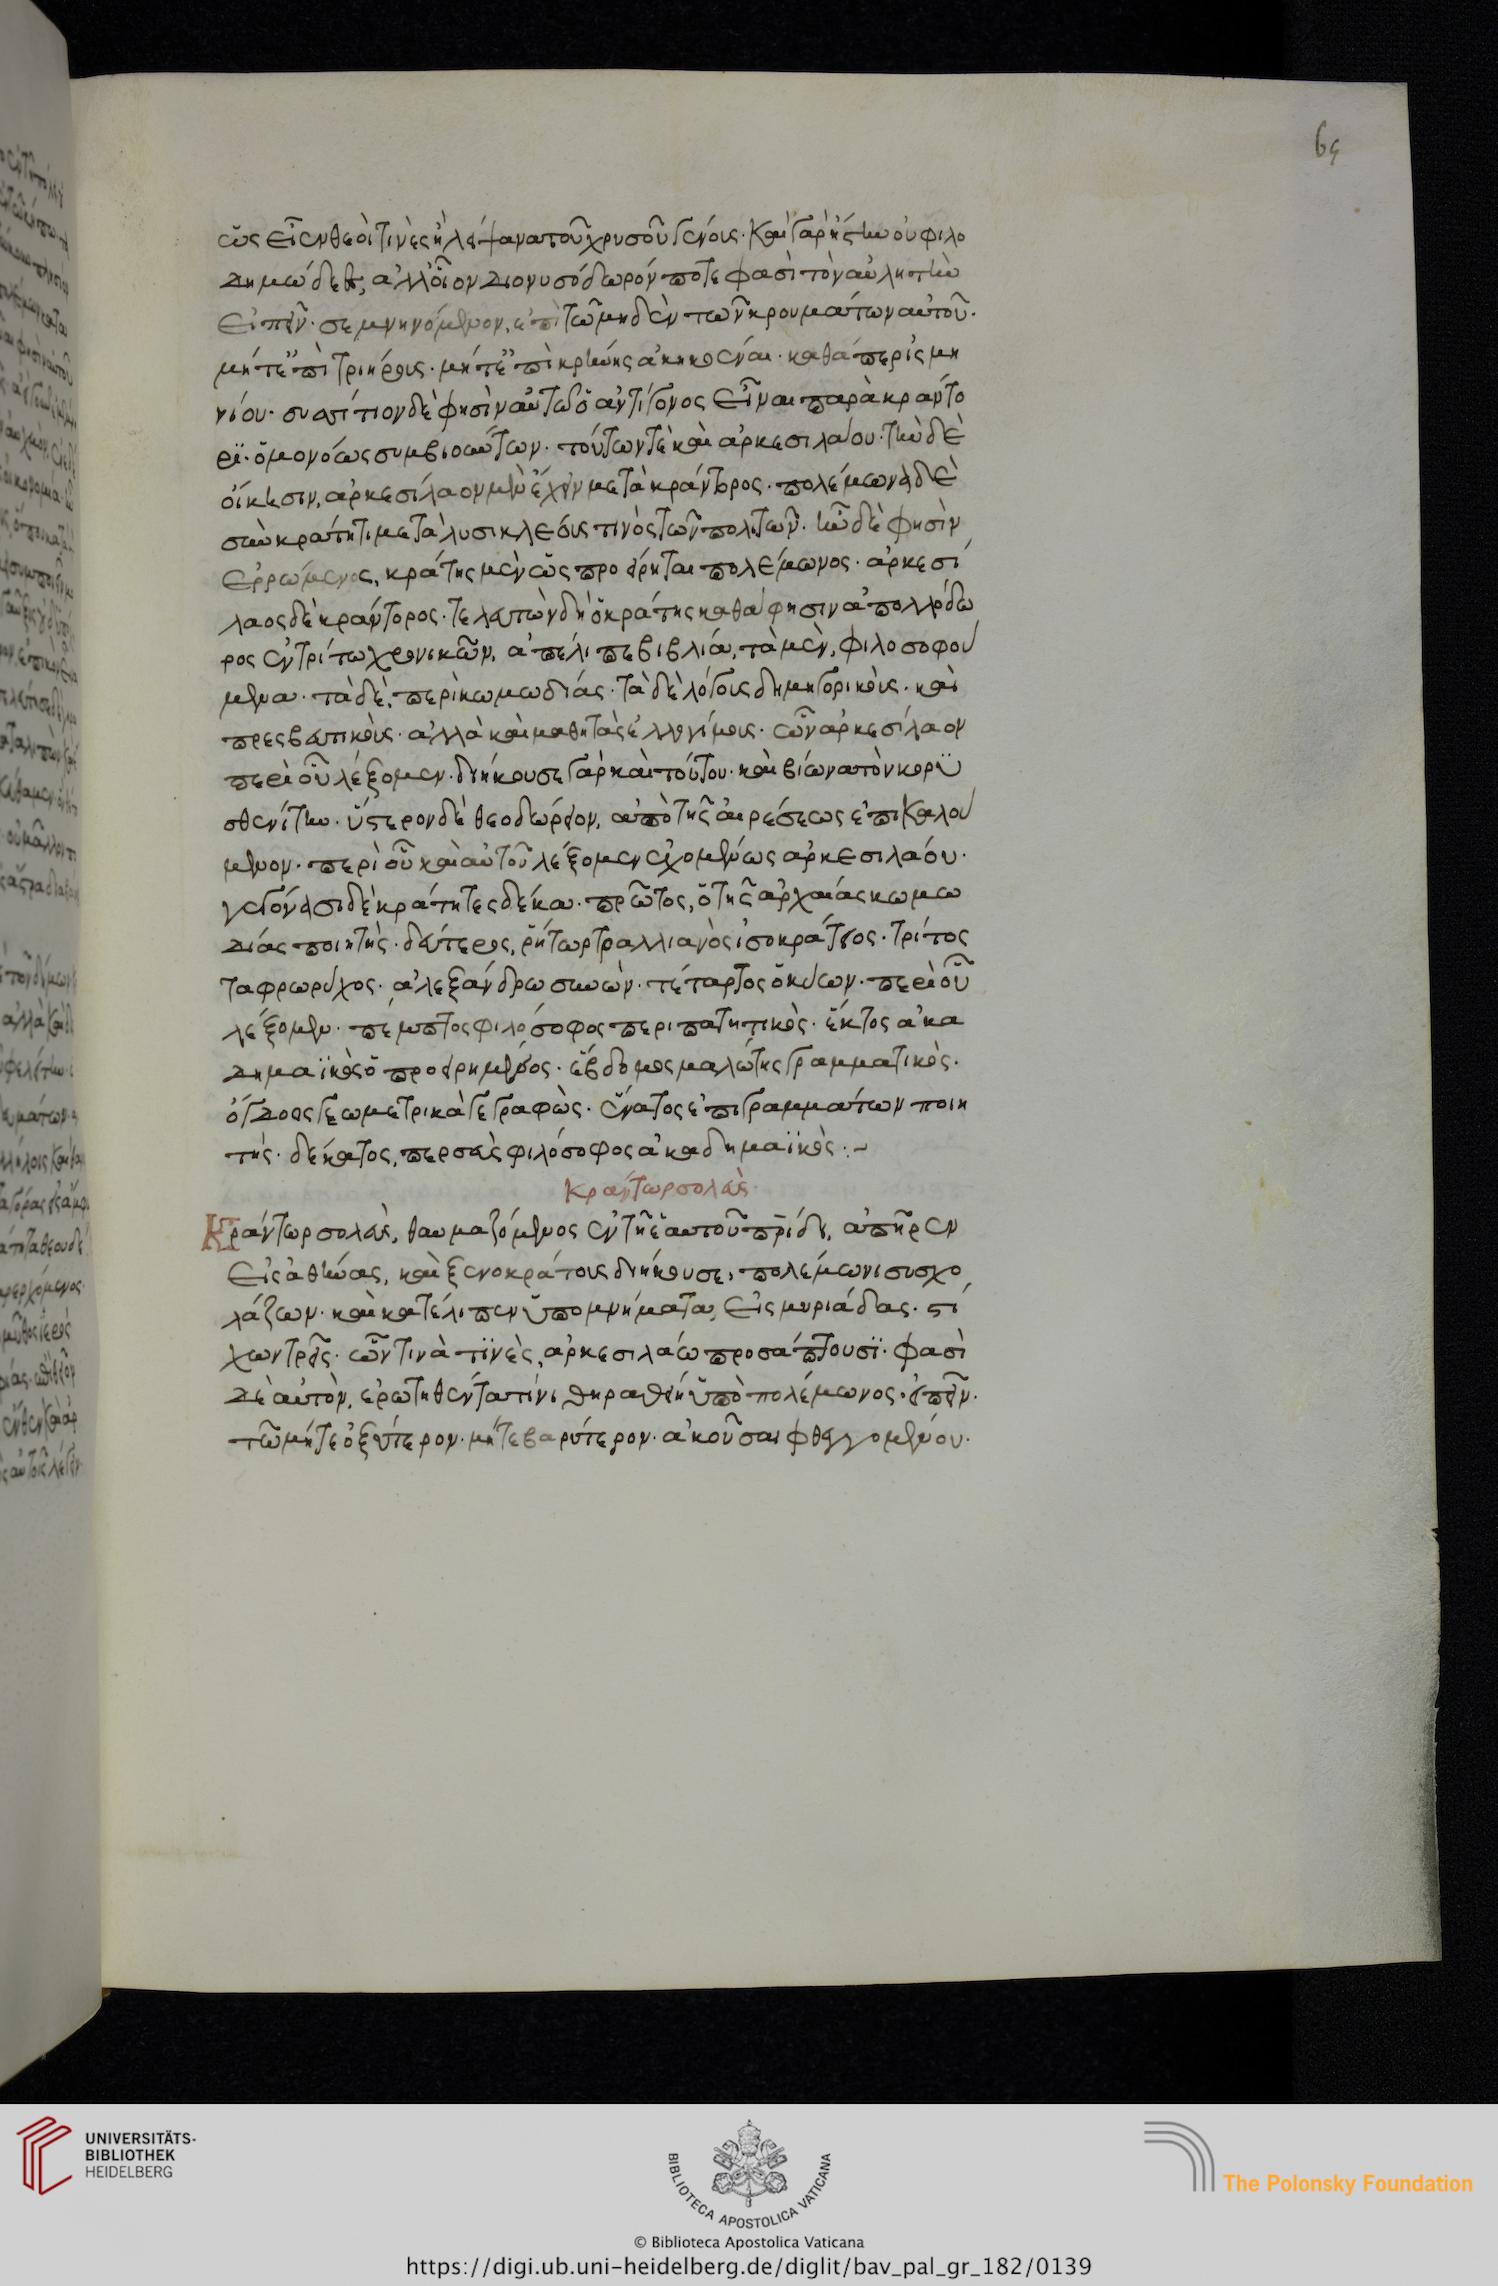 65
ὡς εἶεν θεοί τινὲς ἢ λείψανα τοῦ χρυσοῦ γένους. καὶ γὰρ ἤστην οὐ φιλο
δημώδεε, ἀλλ' οἷον διονυσόδωρόν ποτε φασὶ τὸν αὐλητὴν
εἰπεῖν. σεμνηνόμενον, ἐπὶ τῶ μηδὲν τῶν κρουμάτων αὐτοῦ.
μήτε ἐπὶ τριήρους. μήτε ἐπὶ κρήνης ἀκηκοέναι. καθάπερ ἰσμη
νίου. συσίτιον δὲ φησὶν αὐτῶ ὁ ἀντίγονος εἶναι παρὰ κράντο
ρϊ. ὁμονόως συμβιούντων. τούτων τὲ καὶ ἀρκεσιλάου. τὴν δὲ
οἴκησιν, ἀρκεσίλαον μὲν ἔχειν μετὰ κράντορος. πολέμωνα δὲ
σὺν κράτητι μετὰ λυσικλέους τινὸς τῶν πολιτῶν. ἦν δὲ φησὶν
ἐρρωμενος, κράτης μὲν ὡς προείρηται πολέμωνος. ἀρκεσί
λαος δὲ κράντορος. τελευτὼν δὴ ὁ κράτης καθά φησιν ἀπολλόδω
ρος ἐν τρίτω χρονικῶν, ἀπέλιπε βιβλία, τὰ μὲν, φιλοσοφού
μενα. τὰ δὲ, περὶ κωμωδίας. τὰ δὲ λόγους δημηγορικοὺς. καὶ
πρεσβευτικοὺς. ἀλλὰ καὶ μαθητὰς ἐλλογίμους. ὧν ἀρκεσίλαον
περὶ οὗ λέξομεν. διήκουσε γὰρ καὶ τούτου. καὶ βίωνα τὸν βορυ
σθενίτην. ὕστερον δὲ θεοδώρειον, ἀπὸ τῆς αἱρέσεως ἐπικαλού
μενον. περὶ οὗ καὶ αὐτοῦ λέξομεν ἐχομένως ἀρκεσιλάου.
γεγόνασι δὲ κράτητες δέκα. πρῶτος, ὁ τῆς ἀρχαίας κωμω
δίας ποιητὴς. δεύτερος, ῥήτωρ τραλλιανὸς ἰσοκράτειος. τρίτος
ταφρωρύχος. ἀλεξάνδρω συνὼν. τέταρτος ὁ κύων. περὶ οὗ
λέξομεν. πέμπτος φιλόσοφος περιπατητικὸς. ἕκτος ἀκα
δημαϊκὸς ὁ προειρημένος. ἕβδομος μαλώτης γραμματικὸς.
ὄγδοος γεωμετρικὰ γεγραφὼς. ἔνατος ἐπιγραμμάτων ποιη
τής. δέκατος, ταρσεὺς φιλόσοφος ἀκαδημαϊκὸς:~
κράντωρ σολεὺς
Κράντωρ σολεὺς, θαυμαζόμενος ἐν τῆ ἑαυτοῦ πρίδι, ἀπῆρεν
εἰς ἀθήνας, καὶ ξενοκράτους διήκουσε, πολέμωνι συσχο
λάζων. καὶ κατέλιπεν ὑπομνήματα, εἰς μυριάδας. στί
χων τρεῖς. ὧν τινὰ τϊνὲς, ἀρκεσιλάω προσάπτουσϊ. φασὶ
δὲ αὐτὸν, ἐρωτηθέντα τίνι θηραθείη ὑπὸ πολέμωνος. εἰπεῖν.
τῶ μήτε ὀξύτερον. μήτε βαρύτερον. ἀκοῦσαι φθεγγομένου.
UNIVERSITÄTS-
BIBLIOTHEK
HEIDELBERG
BIBLIOTECA APOSTOLICA VATICANA
The Polonsky Foundation
© Biblioteca Apostolica Vaticana
https://digi.ub.uni-heidelberg.de/diglit/bav_pal_gr_182/0139